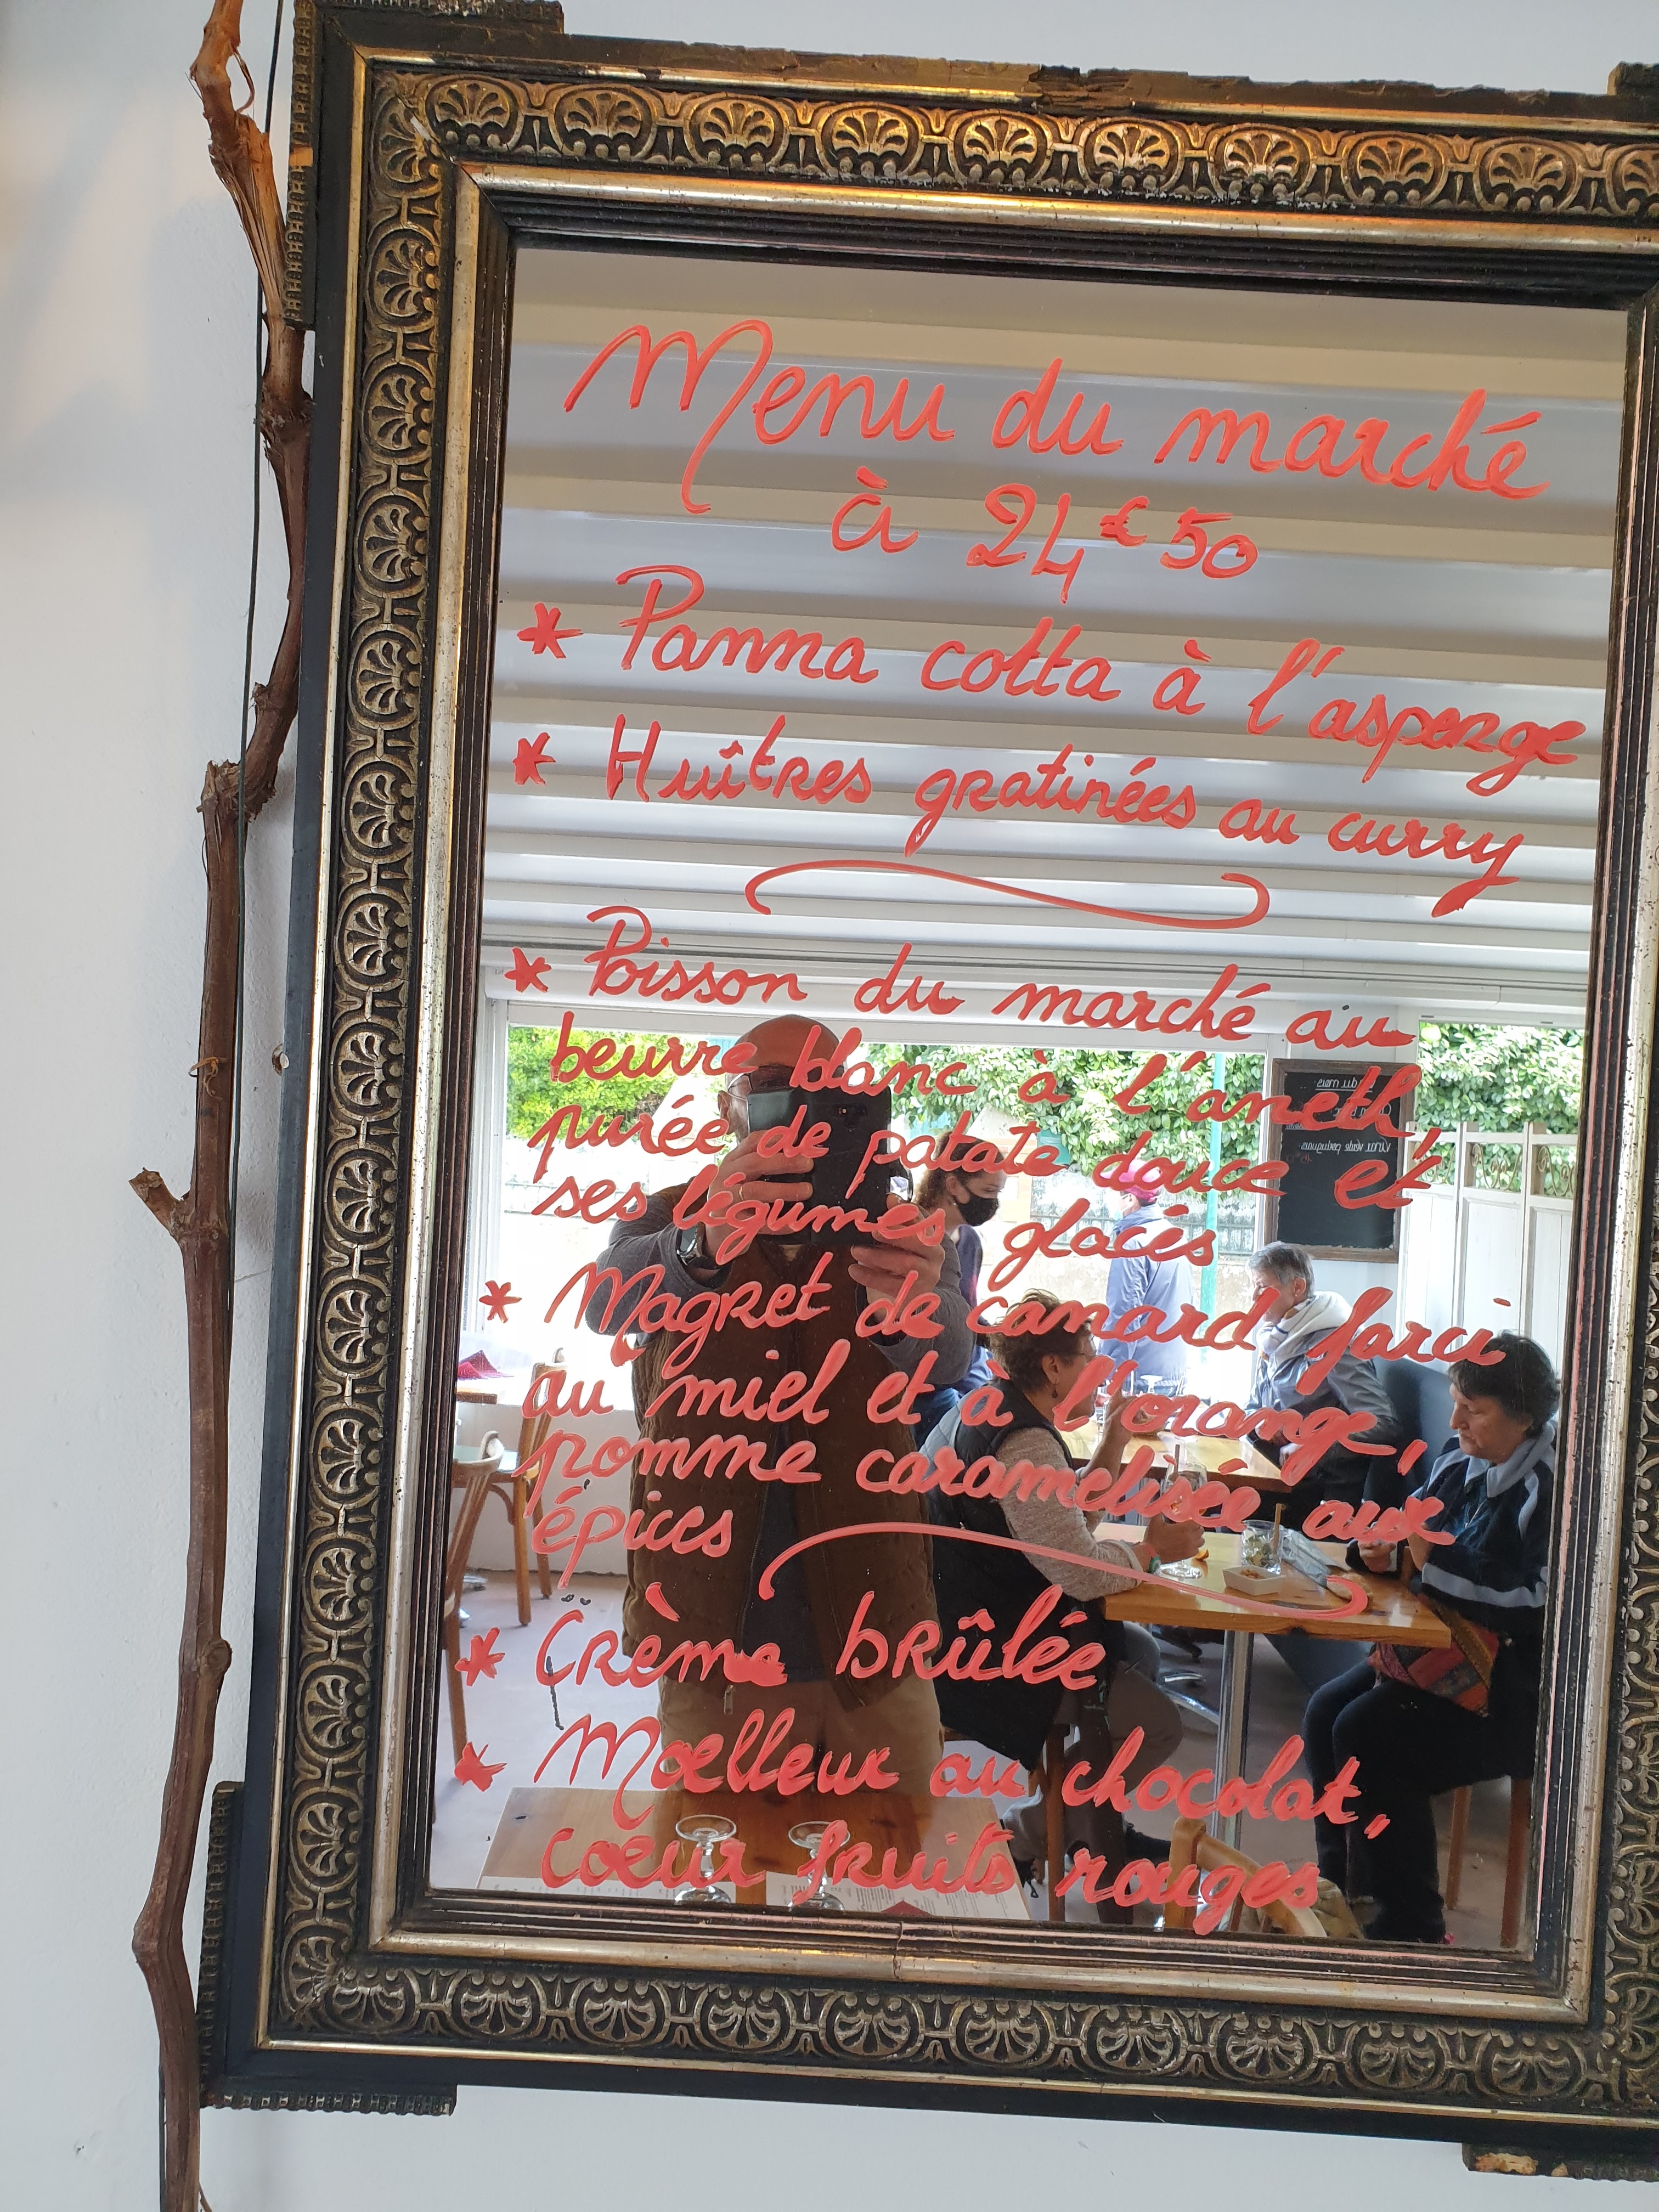 Menu du marché
à 24€50
* Panna cotta à l'asperge
* Huîtres gratinées au curry
* Poisson du marché au
beurre blanc à l'aneth,
purée de patate douce et
ses légumes glacés
* Magret de canard farci
au miel et à l'orange,
pomme caramelisée aux
épices
* Crème brûlée
* Mœlleux au chocolat,
cœur fruits rouges